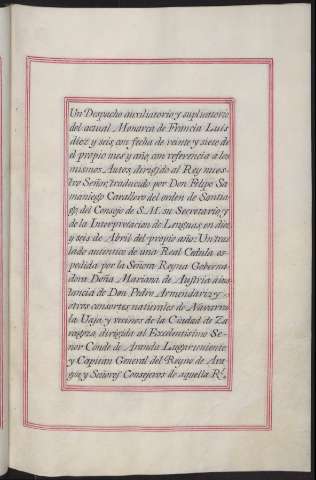 Un Despacho auxiliatorio, y suplicatorio
del actual Monarca de Francia Luis
diez y seis, con fecha de veinte y siete de
el propio mes y año, con referencia a los
mismos Autos, dirigido al Rey nues-
tro Señor, traducido por Don Felipe Sa-
maniego Cavallero del orden de Santia-
go, del Consejo de S.M. su Secretario, y
de la Interpretacion de Lenguas, en diez
y seis de Abril del propio año: Un tras-
lado autentico de una Real Cedula es-
pedida por la Señora Reyna Goberna-
dora Doña Mariana de Austria a ins-
tancia de Don Pedro Armendariz y
otros consortes, naturales de Navarra
la Vaja, y vecinos de la Ciudad de Za-
ragoza, dirigida al Excelentisimo Se-
ñor Conde de Aranda Lugarteniente,
y Capitan General del Reyno de Ara-
gon, y Señores Consejeros de aquella Rl.